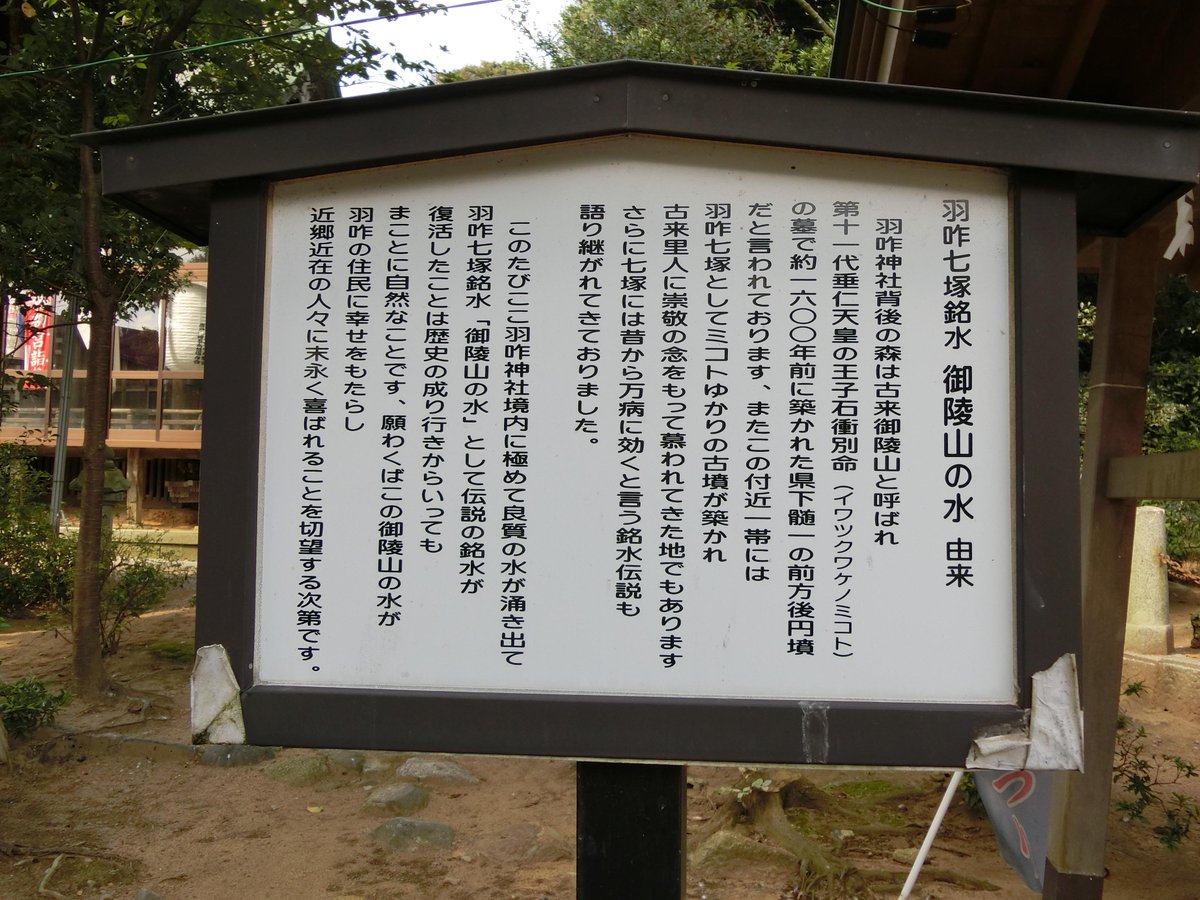 羽咋七塚銘水 御陵山の水 由来
羽咋神社背後の森は古来御陵山と呼ばれ
第十一代垂仁天皇の王子石衝別命(イワツクワケノミコト)
の墓で約一六〇〇年前に築かれた県下髄一の前方後円墳
だと言われております、またこの付近一帯には
羽咋七塚としてミコトゆかりの古墳が築かれ
古来里人に崇敬の念をもって慕われてきた地でもあります
さらに七塚には昔から万病に効くと言う銘水伝説も
語り継がれてきておりました。
このたびここ羽咋神社境内に極めて良質の水が涌き出て
羽咋七塚銘水「御陵山の水」として伝説の銘水が
復活したことは歴史の成り行きからいっても
まことに自然なことです、願わくばこの御陵山の水が
羽咋の住民に幸せをもたらし
近郷近在の人々に末永く喜ばれることを切望する次第です。